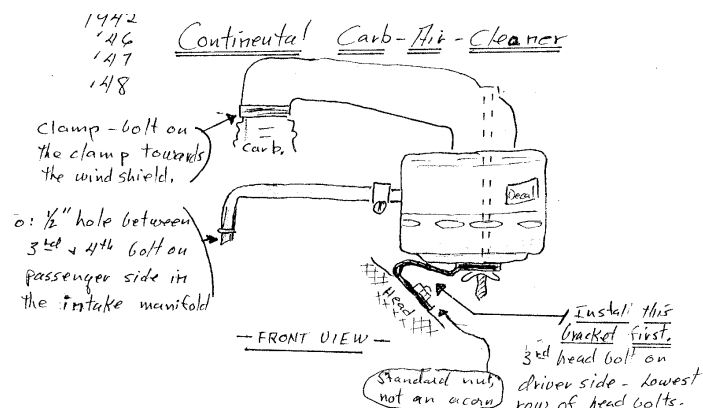 1942
'46
'47
'48
Continental Carb-Air-Cleaner
clamp-bolt on
the clamp towards
the windshield.
carb.
Decal
o: 1/2" hole between
3rd & 4th bolt on
passenger side in
the intake manifold
Head
- FRONT VIEW -
Standard nut,
not an acorn
Install this
bracket first.
3rd head bolt on
driver side - Lowest
row of head bolts.